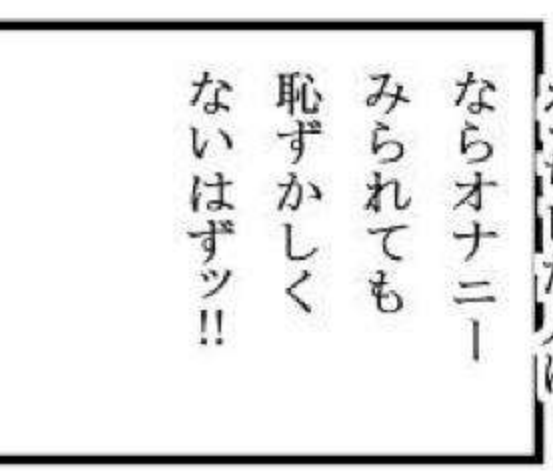 ならオナニー
みられても
恥ずかしく
ないはずッ!!